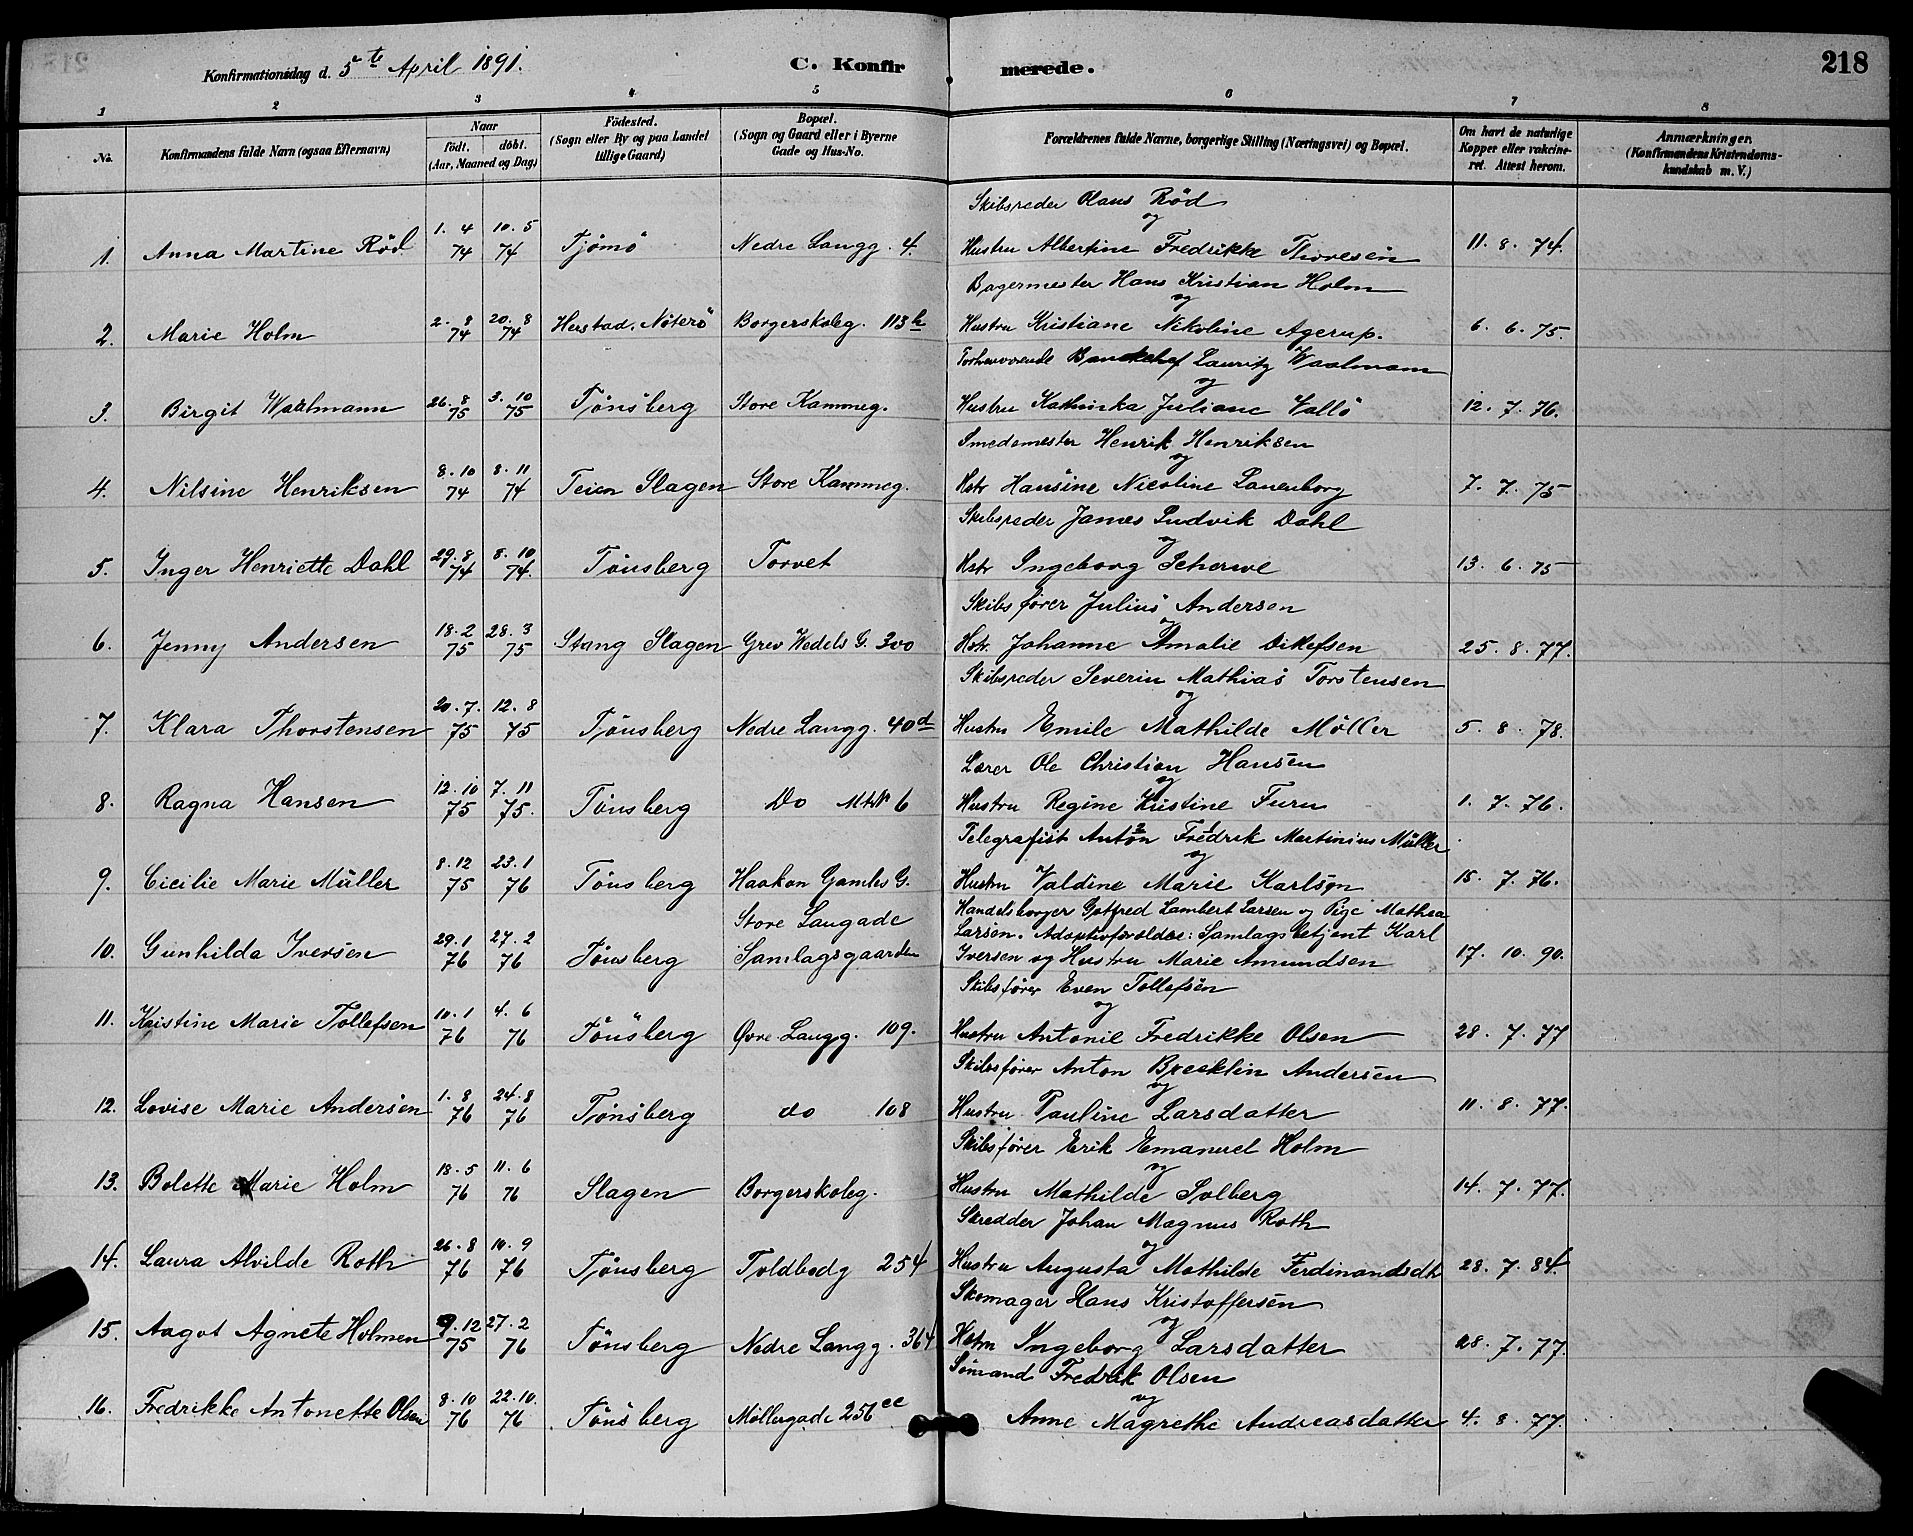 Konfirmationsdag d. 5te April 1891. C. Konfirmerede. 218
1 2 3 4 5 6 7 8
No. Konfirmandens fulde Navn (ogsaa Efternavn) Naar født. døbt. (Aar, Maaned og Dag) Fødested. (Sogn eller By og paa Landet tillige Gaard) Bopæl. (Sogn og Gaard eller i Byerne Gade og Hus-No. Forældrenes fulde Navne, borgerlige Stilling (Næringsvei) og Bopæl. Om havt de naturlige Kopper eller vakcineret. Attest herom. Anmærkninger. (Konfirmandens Kristendomskundskab m. V.)
Skibsreder Olaus Rød
og
1. Anna Martine Rød 1. 4 74 10. 5 74 Tjømø Nedre Langg. 4. Hustru Albertine Fredrikke Thoresen 11. 8. 74.
Bagermester Hans Kristian Holm
og
2. Marie Holm 2. 8 74 20. 8 74 Herstad, Nøterø Borgerskoleg. 113h Hustru Kristiane Nikoline Agerup. 6. 6. 75.
Forhenværende Bankchef Lauritz Waalmann
og
3. Birgit Waalmann 26. 8 75 3. 10 75 Tønsberg Store Kammeg. Hustru Kathinka Juliane Vallø 12. 7. 76.
Smedemester Henrik Henriksen
og
4. Nilsine Henriksen 8. 10 74 8. 11 74 Teien Slagen Store Kammeg. Hstr Hansine Nicoline Lauenborg 7. 7. 75
Skibsreder James Ludvik Dahl
og
5. Inger Henriette Dahl 29. 8 74 8. 10 74. Tønsberg Torvet Hstr Ingeborg Scherve 13. 6. 75
Skibsfører Julius Andersen
og
6. Jenny Andersen 18. 2 75 28. 3 75 Stang Slagen Grev Wedels G. 300 Hstr. Johanne Amalie Ditlefsen 25. 8. 77.
Skibsreder Severin Mathias Torstensen
og
7. Klara Thorstensen 20. 7. 75 12. 8 75 Tønsberg Nedre Langg. 40d Hustru Emile Mathilde Møller 5. 8. 78.
Lærer Ole Christian Hansen
og
8. Ragna Hansen 12. 10 75 7. 11 75. Tønsberg Do MtN 6 Hustru Regine Kristine Furu 1. 7. 76.
Telegrafist Anton 2 Fredrik 1 Martinius Müller
og
9. Cicilie Marie Müller 8. 12 75 23. 1 76 Tønsberg Haakon Gamles G. Hustru Valdine Marie Karlsen 15. 7. 76.
Store Langade Handelsborger Gotfred Lambert Larsen og Pige Mathea
Larsen. Adoptivforældre: Samlagsbetjent Karl
10. Gunhilda Iversen 29. 1 76 27. 2 76 Tønsberg Samlagsgaarden Iversen og Hustru Marie Amundsen 17. 10. 90.
Skibsfører Even Tollefsen
og
11. Kristine Marie Tollefsen 10. 1 76 4. 6 76 Tønsberg Øvre Langg. 109. Hustru Antonie Fredrikke Olsen 28. 7. 77
Skibsfører Anton Andersen
og
12. Lovise Marie Andersen 1. 8 76 24. 8 76 Tønsberg do 108 Hustru Pauline Larsdatter 11. 8. 77.
Skibsfører Erik Emanuel Holm
og
13. Bolette Marie Holm 18. 5 76 11. 6 76 Slagen Borgerskoleg. Hustru Mathilde Solberg 14. 7. 77.
Skredder Johan Magnus Roth
og
14. Laura Alvilde Roth 26. 8 76 10. 9 76 Tønsberg Toldbodg 254 Hustru Augusta Mathilde Ferdinandsdtr 28. 7. 84.
Skomager Hans Kristoffersen
og
15. Aagot Agnete Holmen 29. 12 75 27. 2 76 Tønsberg Nedre Langg. 364 Hstru Ingeborg Larsdatter 28. 7. 77.
Sømand Fredrik Olsen
og
16. Fredrikke Antonette Olsen 8. 10 76 22. 10. 76 Tønsberg Møllergade 256 ee Anne Magrethe Andreasdatter 4. 8. 77.